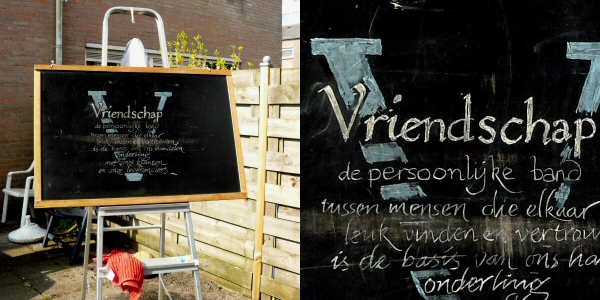 Vriendschap
de persoonlijke band
tussen mensen die elkaar
leuk vinden en vertrouwen
is de basis van ons handelen
onderling
met onze klanten
en onze leveranciers
Vriendschap
de persoonlijke band
tussen mensen die elkaar
leuk vinden en vertrouw
is de basis van ons ha
onderling